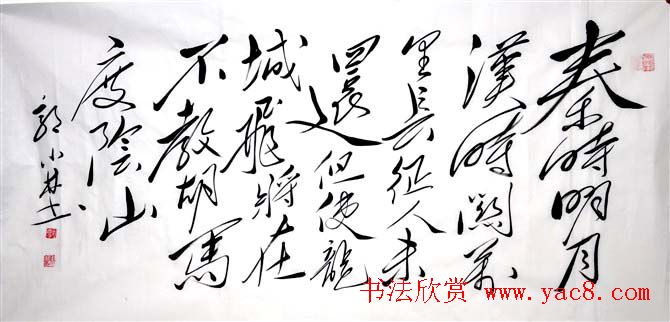 秦時明月
漢時關萬
里長征人未
還但使龍
城飛將在
不教胡馬
度陰山
郭小
书法欣赏 www.yac8.com